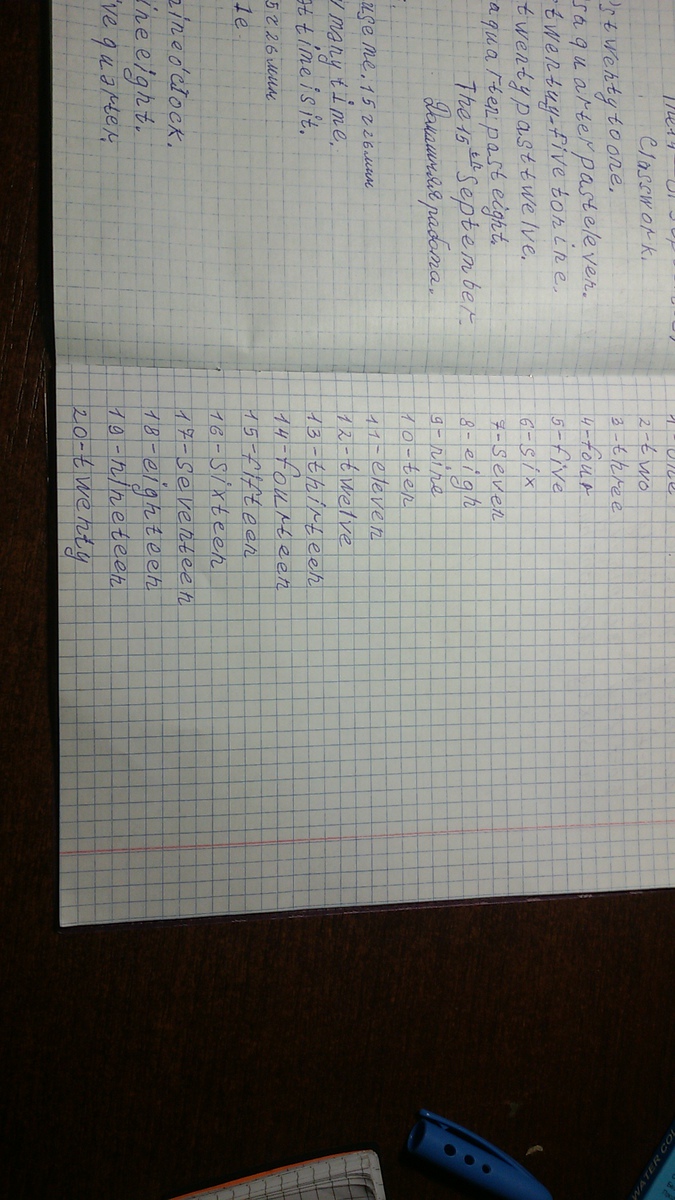 Classwork.
twenty to one.
a quarter past eleven.
twenty-five to nine.
twenty past twelve.
a quarter past eight
The 15th September.
Домашняя работа.
me. 15 г 26 мин
many time.
time is it.
5 г 26 мин
te
o'clock.
eight.
quarter
2-two
3-three
4-four
5-five
6-six
7-seven
8-eigh
9-nine
10-ten
11-eleven
12-twelve
13-thirteen
14-fourteen
15-fifteen
16-sixteen
17-seventeen
18-eighteen
19-nineteen
20-twenty
WATER COL